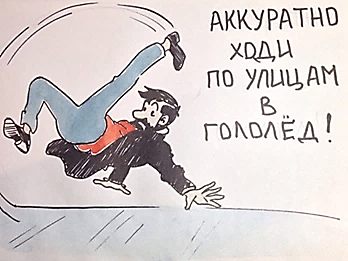 АККУРАТНО
ХОДИ
ПО УЛИЦАМ
В
ГОЛОЛЁД!